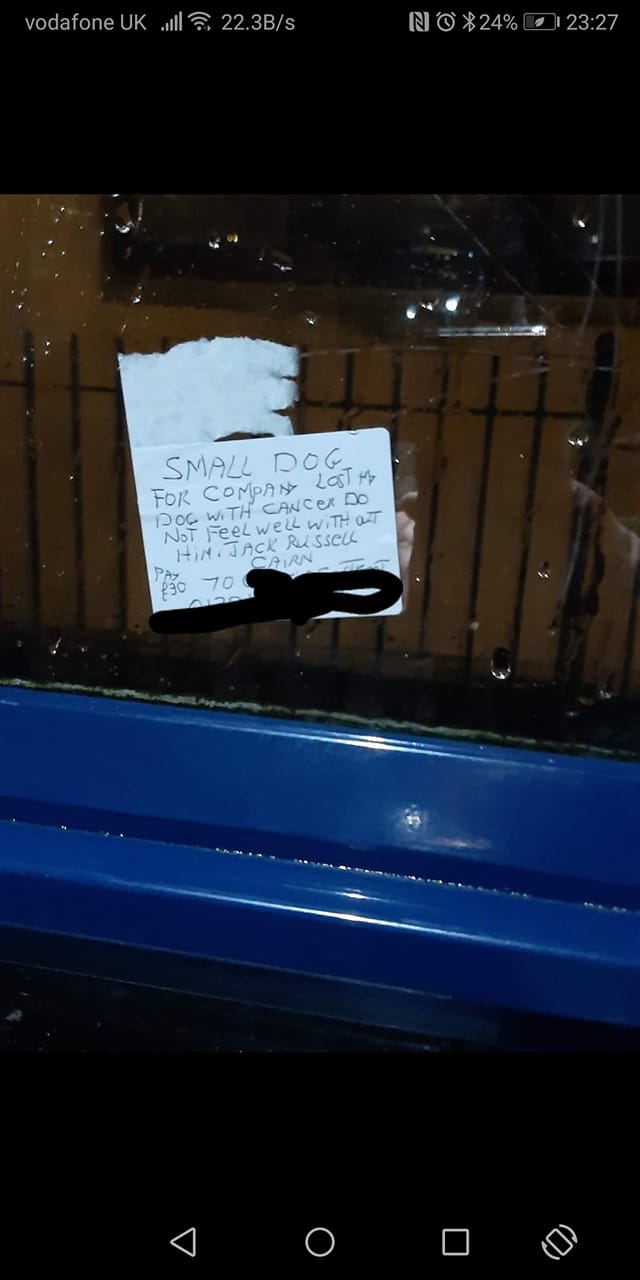 vodafone UK 22.3B/s 24% 23:27
SMALL DOG
FOR COMPANY LOST MY
DOG WITH CANCER DO
NOT FEEL WELL WITHOUT
HIM. JACK RUSSELL
CAIRN
PAY
£30
70